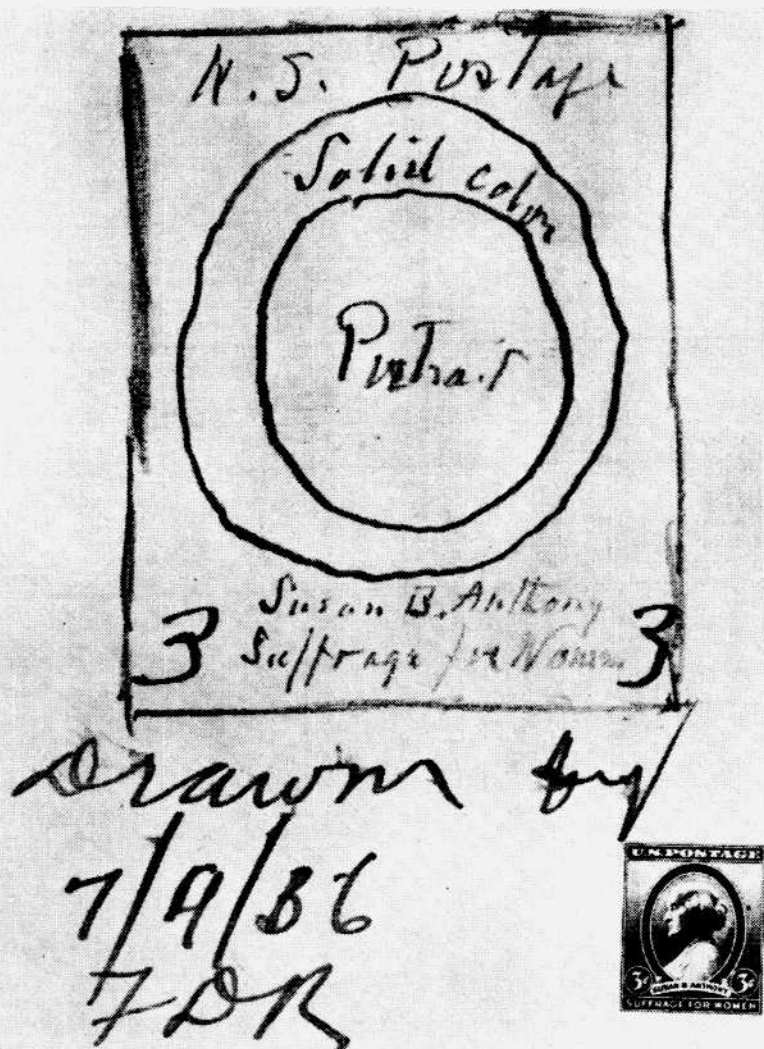 U.S. Postage
Solid color
Portrait
Susan B. Anthony
3 Suffrage for Women 3
Drawn by
7/9/36
FDR
U.S. POSTAGE
3¢ 3¢
SUSAN B. ANTHONY
SUFFRAGE FOR WOMEN